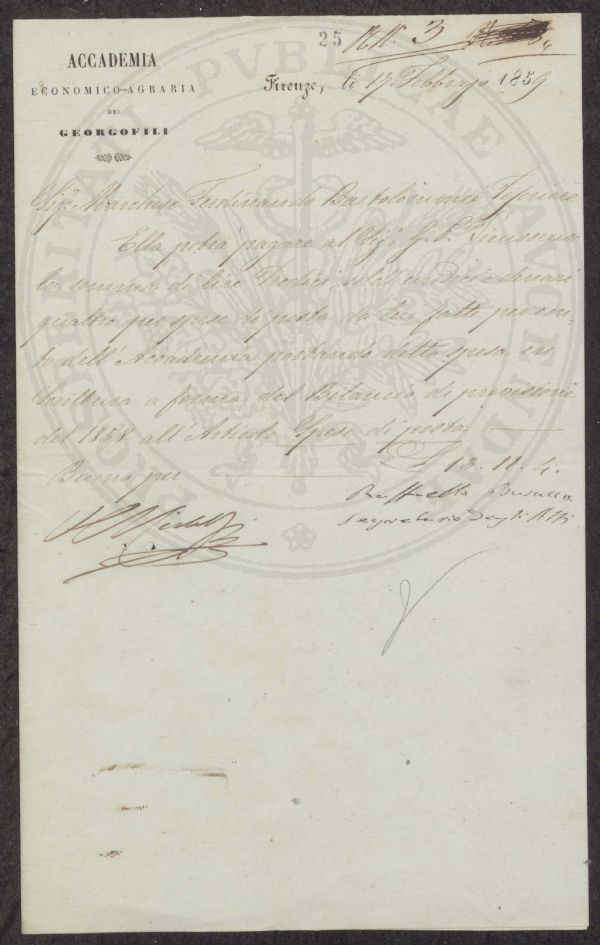 25 N.º 3
ACCADEMIA
ECONOMICO-AGRARIA
DEI
GEORGOFILI
Firenze, li 19 Febbrajo 1859
Sigr Marchese Ferdinando Bartolommei Tesoriere
Ella potrà pagare al Sigr G. P. Vieusseux
la somma di lire Tredici, soldi undici e denari
quattro per spese di posta da lui fatte per con-
to dell'Accademia portando detta spesa in
Scrittura a forma del Bilancio di previsione
del 1858 all'Articolo Spese di posta
£ 13. 11. 4.
Buono per
Raffaello Busacca
Segretario degli Atti
PROSPERITATI PUBLICAE AUGENDAE